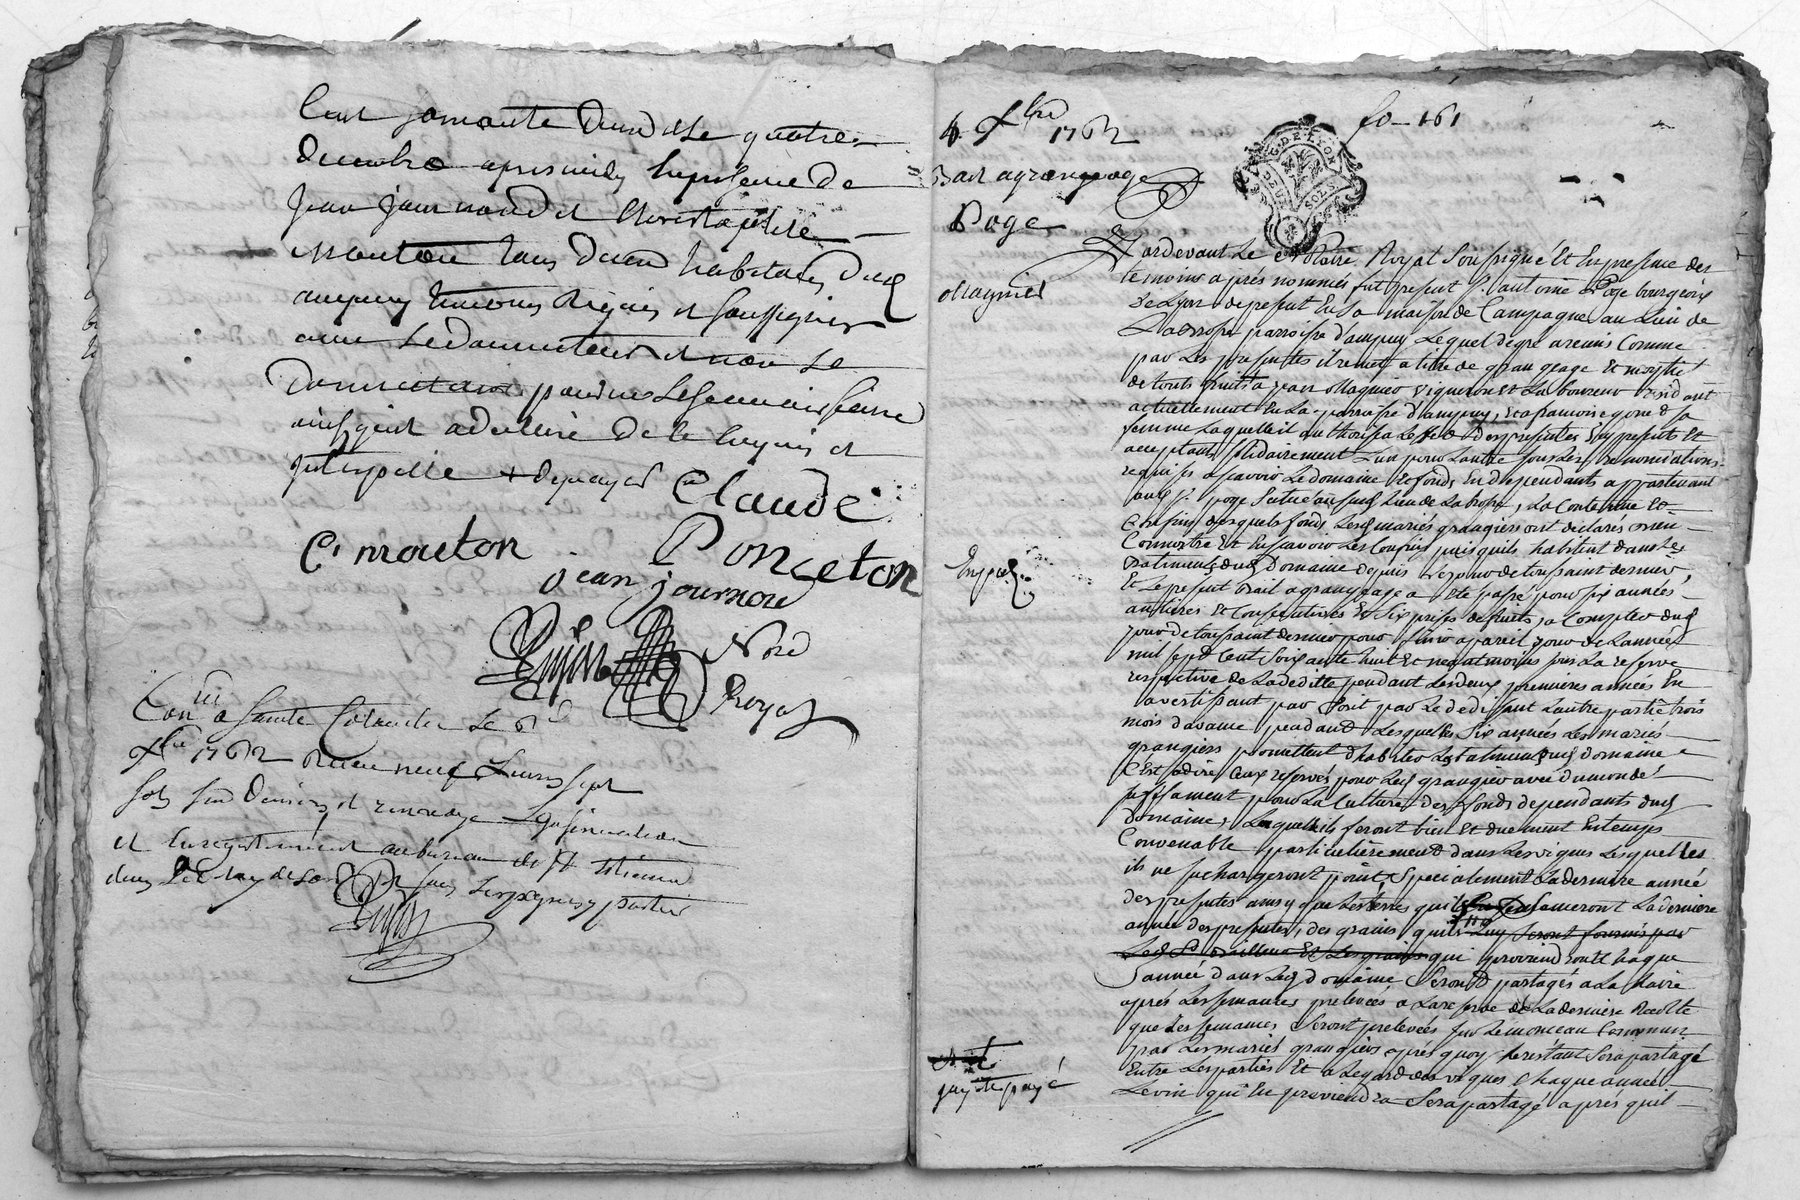 Cent soixante deux et le quatre
decembre apres midy En presence de
Jean Journoud et Christophle
Mouton tous deux habitans dud
ampuy temoins Requis et soussignés
avec le donnateur et non le
donnattaire pour ne le scavoir faire
ainsy qu'il a declaré de ce Enquis et
interpellé
Claude
C. mouton Ponceton
jean journoud
Nore
Royal
Con lle a Sainte Colombe le 6
Xbre 1762 Receu neuf Livres sept
sols six deniers et renvoye L'insinuation
et Enregistrement au bureau de St Etienne
dans le delay de par les parties
4 Xbre 1762
fo - 161
G. DE LYON
DEUX SOLS
Bail a grangeage
Poge
Magnié
Pardevant Le Notaire Royal Soussigné Et En presence des
temoins après nommés fut present Sr. antoine Poge bourgeois
de Lyon de present En sa maison de Campagne au Lieu de
Labrosse parroisse d'ampuy Lequel de gré a remis Comme
par Les presentes il remet a titre de grangeage Et moytié
de touts fruits a jean Magnier vigneron Et Laboureur residant
actuellement En La parroisse d'ampuy, Et a francoise sa
femme Laquelle il authorise Le fait des presentes icy presents Et
acceptants solidairement L'un pour L'autre sous Les renonciations
requises a scavoir Le domaine Et fonds En dependants appartenant
aud. Sr. poge Situé aud Lieu de Labrosse, La Contenue Et
Confins desquels fonds Lesd mariés grangiers ont declarés bien
Connoitre Et En scavoir Les Confins puis qu'ils habitent dans Les
batiments dud Domaine depuis Le jour de toussaint dernier,
Et Le present Bail a grangeage a Eté passé pour six années
antieres Et Consecutives Et Six prises de fruits, a Compter dud
jour de toussaint dernier pour finir a pareil jour de L'année
mil sept Cent Soixante huit Et neantmoins sous La reserve
respective de La deditte pendant Les deux premières années En
avertissant par Ecrit par Le dedisant L'autre partie trois
mois d'avance pendant Lesquelles Six années Les mariés
grangiers promettent d'habiter Les batiments dud domaine
C'est adire Ceux reservés pour Led grangier avec du monde
suffisament pour La Culture des fonds dependants dud
domaine, Laquelle ils feront bien Et duement En temps
Convenable particulièrement dans Les vignes Lesquelles
ils ne surchargeront point, Specialement La dernière année
des presentes ainsy que Les terres qu'ils Ensemeront La dernière
année des presentes, des grains qu'ils Luy Seront fournis par
Led Sr. bailleur Et Les grains qui proviendront Chaque
année dans Led domaine Seront partagés a La haire
après Les semances prelevées a La reserve de La dernière Recolte
que Les semances Seront prelevées sur Le monceau Commun
par Les mariés grangiers après quoy Le restant Sera partagé
Entre Les parties Et a L'egard des vignes Chaque année
Le vin qui En proviendra Sera partagé après qu'il